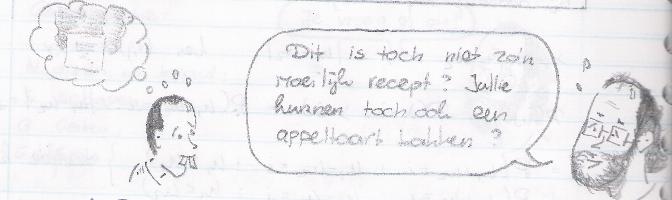 Dit is toch niet zo'n
moeilijk recept? Jullie
kunnen toch ook een
appeltaart bakken?